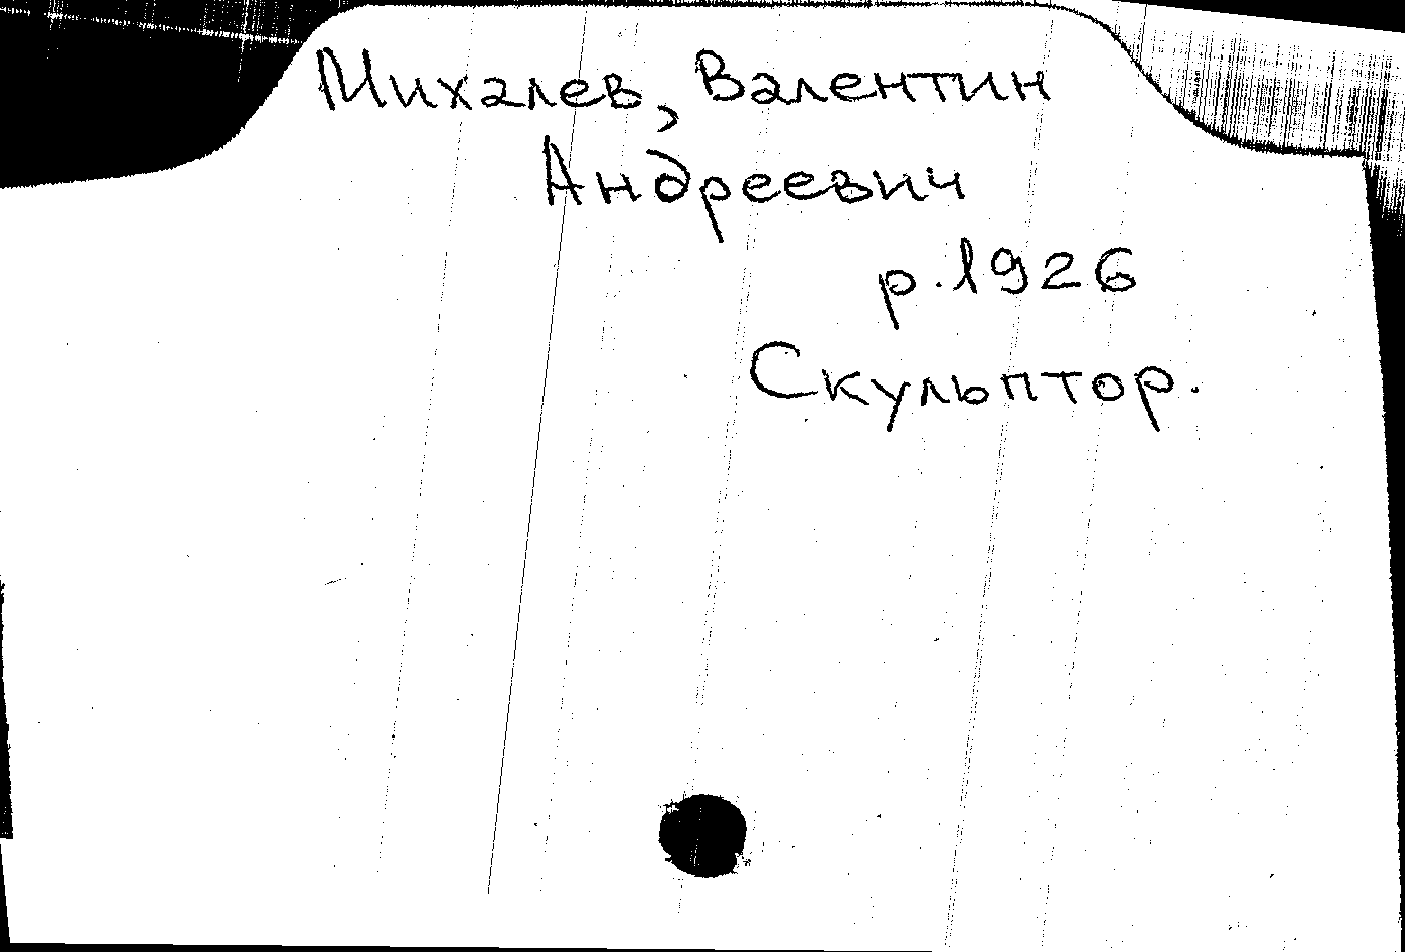 Михалев, Валентин
Андреевич
р. 1926
Скульптор.